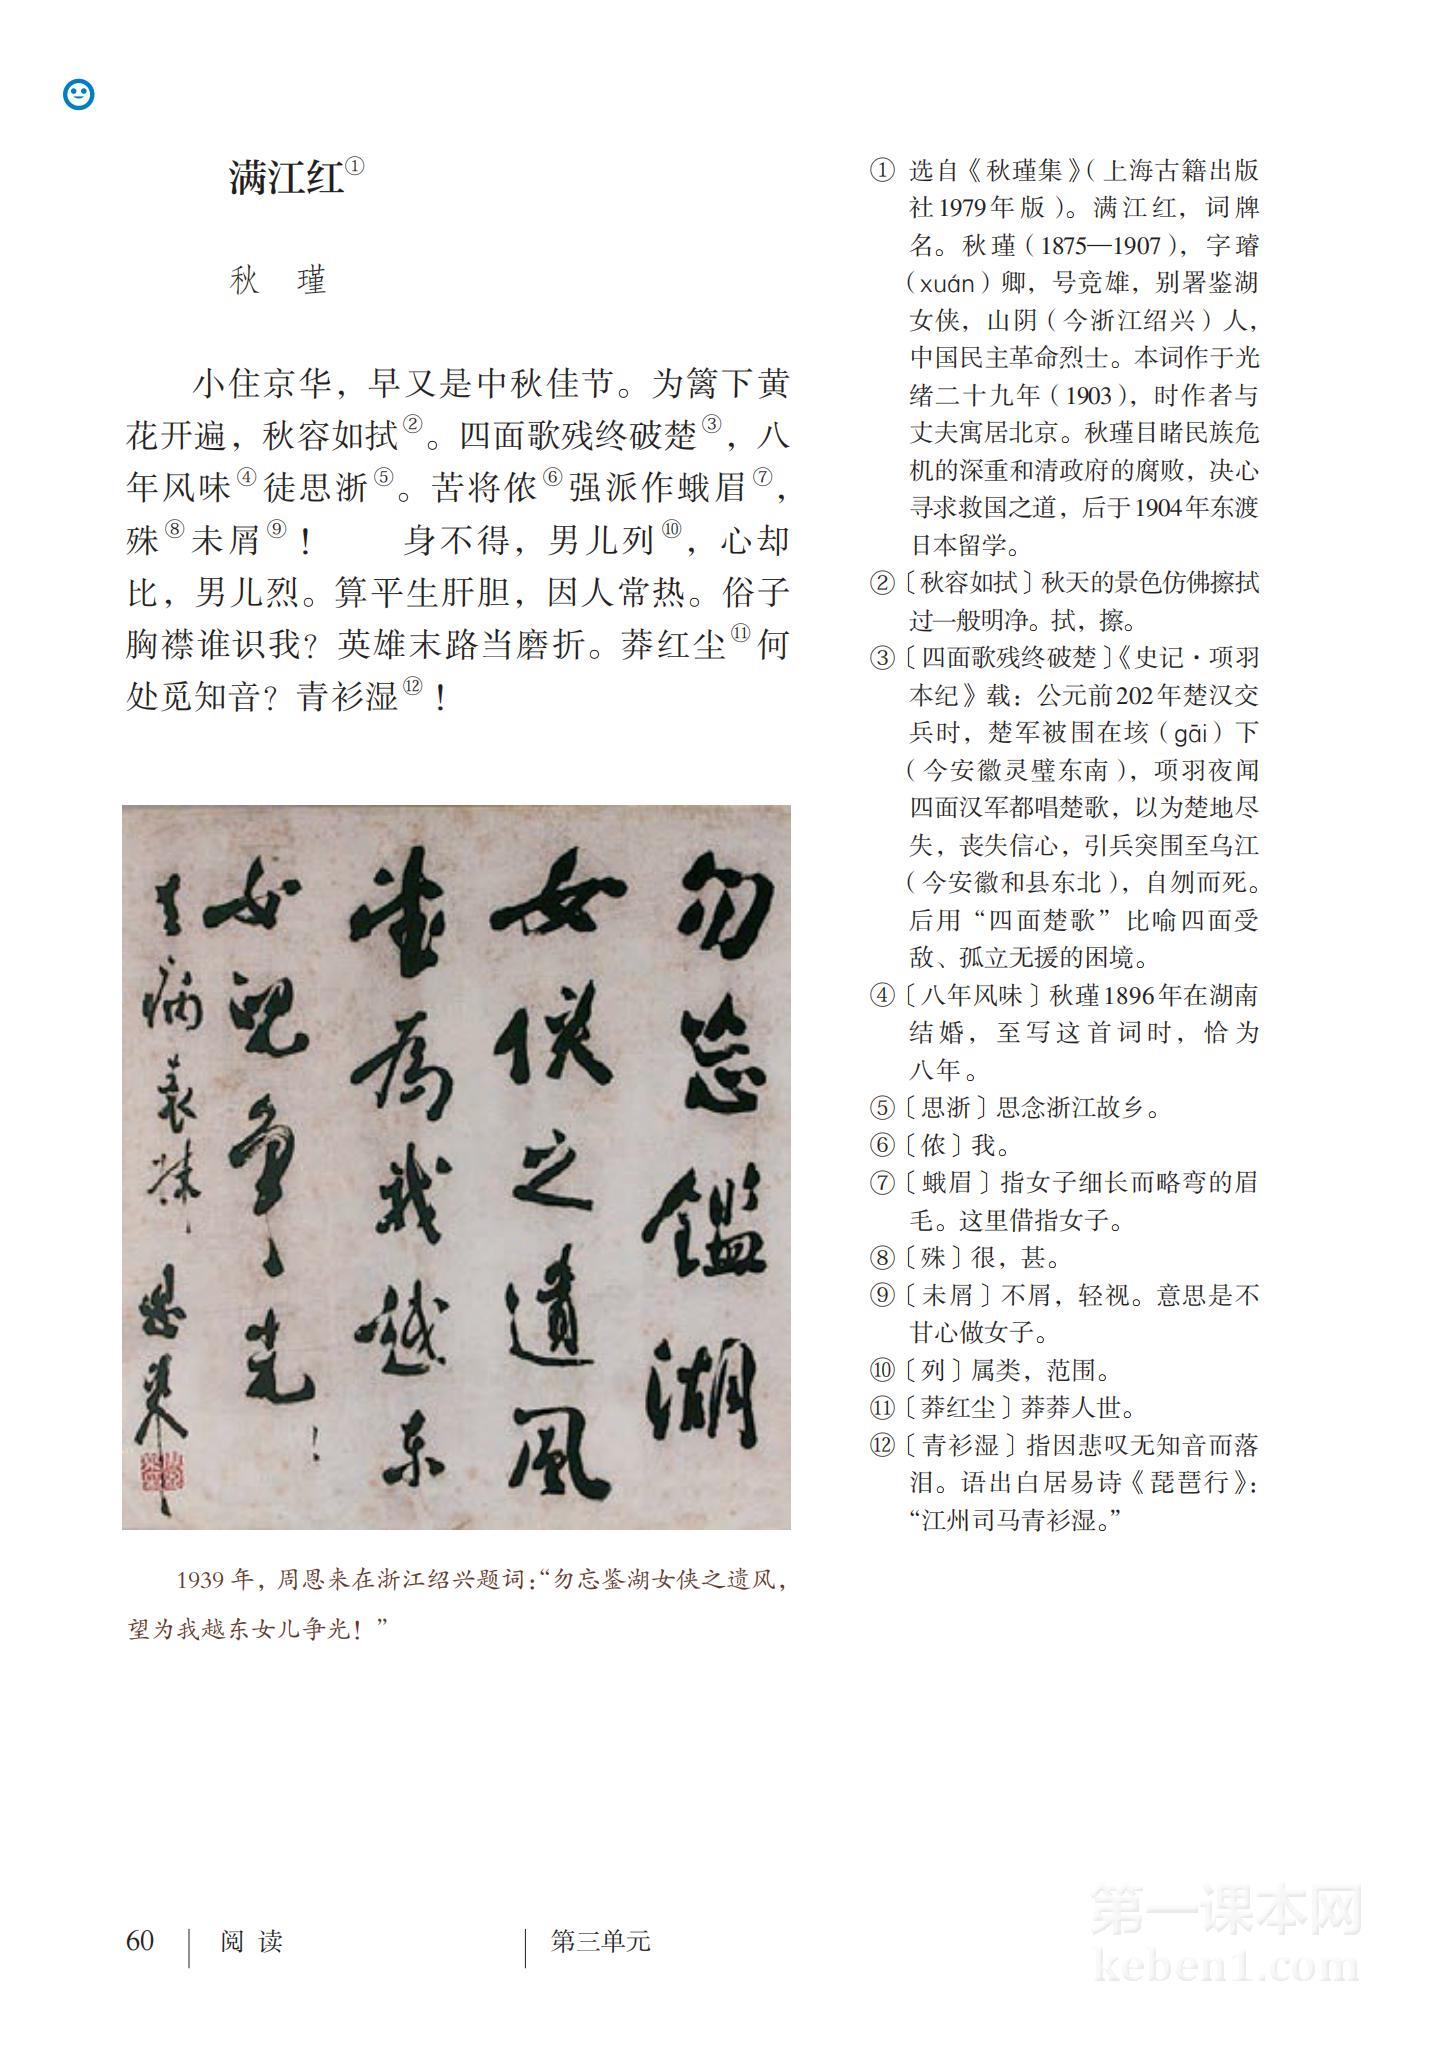 满江红①
秋 瑾
小住京华，早又是中秋佳节。为篱下黄
花开遍，秋容如拭②。四面歌残终破楚③，八
年风味④徒思浙⑤。苦将侬⑥强派作蛾眉⑦，
殊⑧未屑⑨！　　身不得，男儿列⑩，心却
比，男儿烈。算平生肝胆，因人常热。俗子
胸襟谁识我？英雄末路当磨折。莽红尘⑪何
处觅知音？青衫湿⑫！
勿忘鑑湖
女侠之遗風
望為我越东
女児争光！
恩来
1939 年，周恩来在浙江绍兴题词：“勿忘鉴湖女侠之遗风，
望为我越东女儿争光！”
① 选自《秋瑾集》（上海古籍出版
社1979年版）。满江红，词牌
名。秋瑾（1875—1907），字璿
（xuán）卿，号竞雄，别署鉴湖
女侠，山阴（今浙江绍兴）人，
中国民主革命烈士。本词作于光
绪二十九年（1903），时作者与
丈夫寓居北京。秋瑾目睹民族危
机的深重和清政府的腐败，决心
寻求救国之道，后于1904年东渡
日本留学。
②〔秋容如拭〕秋天的景色仿佛擦拭
过一般明净。拭，擦。
③〔四面歌残终破楚〕《史记·项羽
本纪》载：公元前202年楚汉交
兵时，楚军被围在垓（gāi）下
（今安徽灵璧东南），项羽夜闻
四面汉军都唱楚歌，以为楚地尽
失，丧失信心，引兵突围至乌江
（今安徽和县东北），自刎而死。
后用“四面楚歌”比喻四面受
敌、孤立无援的困境。
④〔八年风味〕秋瑾1896年在湖南
结婚，至写这首词时，恰为
八年。
⑤〔思浙〕思念浙江故乡。
⑥〔侬〕我。
⑦〔蛾眉〕指女子细长而略弯的眉
毛。这里借指女子。
⑧〔殊〕很，甚。
⑨〔未屑〕不屑，轻视。意思是不
甘心做女子。
⑩〔列〕属类，范围。
⑪〔莽红尘〕莽莽人世。
⑫〔青衫湿〕指因悲叹无知音而落
泪。语出白居易诗《琵琶行》：
“江州司马青衫湿。”
60 阅 读 第三单元
第一课本网
keben1.com